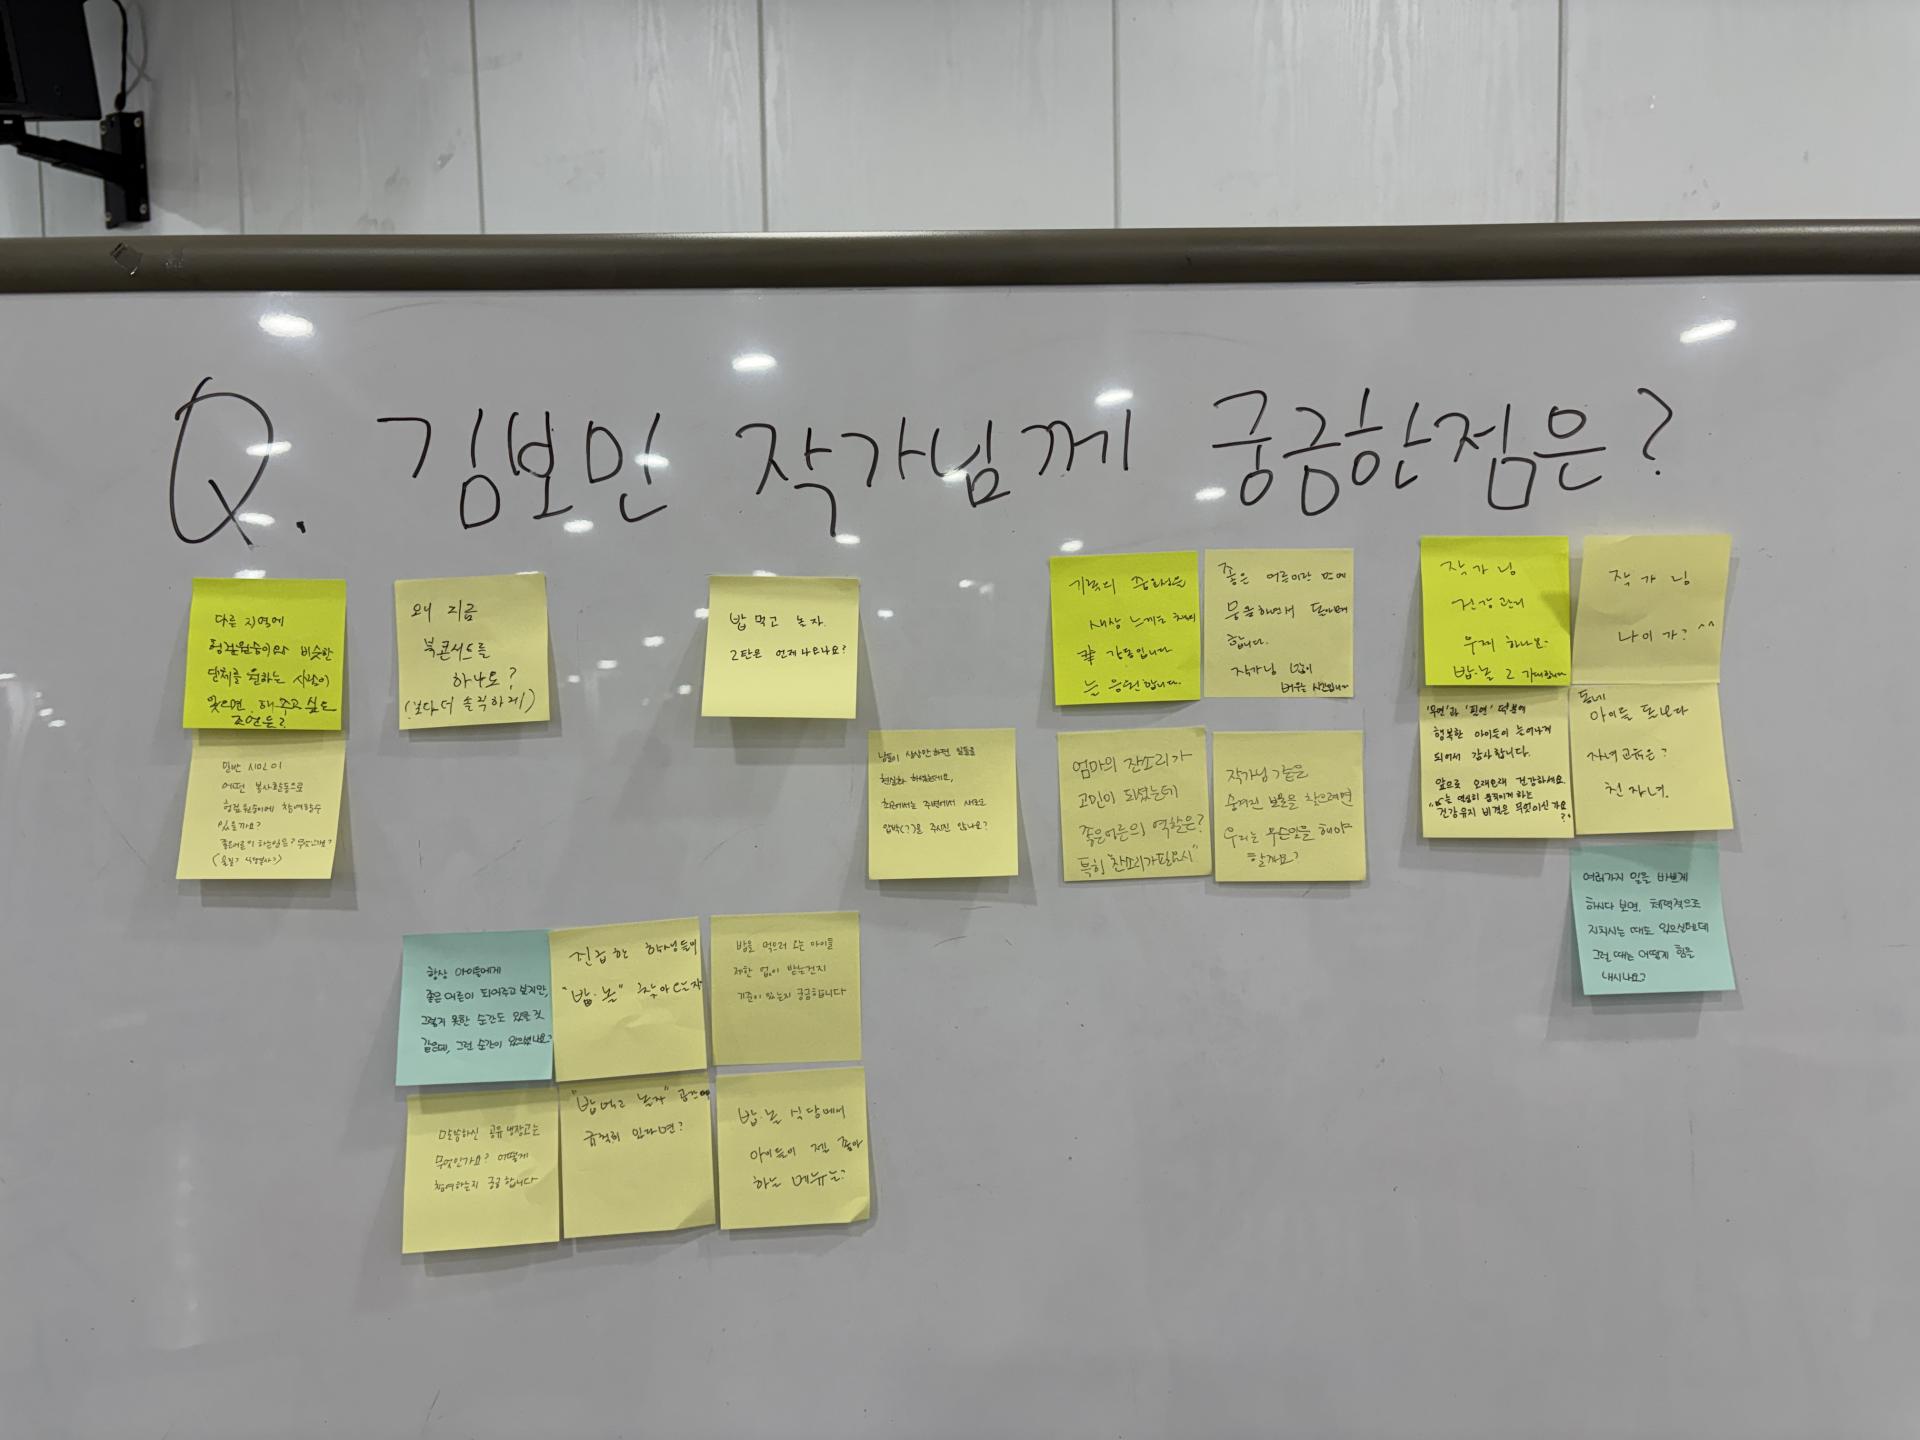 Q. 김보민 작가님께 궁금한점은?
다른 지역에
비슷한
단체를 원하는 사람이
있으면, 해 주고 싶은
조언은?
왜 지금
북콘서트를
하나요?
(보다 더 솔직하게)
밥 먹고 놀자.
2탄은 언제 나오나요?
기록의 중요성을
새삼 느끼는
감동입니다
늘 응원합니다.
좋은 어른이란 말에
뭉클하면서 돌아봐
집니다.
작가님 많이
배우는 시간입니다
작가님
건강관리
우째 하나요.
밥.놀 2 기대합니다
작가님
나이가? ^^
일반 시민이
어떤 봉사활동으로
참여할수
있을까요?
좋은어른이 하는일은? 무엇인가요?
남들이 상상만 하던 일들을
현실화 하셨는데요,
최근에는 주변에서 새로운
압박(?)을 주시진 않나요?
엄마의 잔소리가
고민이 되셨는데
좋은어른의 역할은?
특히 "잔소리가필요시"
작가님 같은
숨겨진 보물을 찾으려면
우리는 무슨일을 해야
할까요?
'우연'과 '필연' 덕분에
행복한 아이들이 늘어나게
되어서 감사합니다.
앞으로 오래오래 건강하세요
열심히 움직이게 하는
건강유지 비결은 무엇이신가요
?.
동네
아이들 돌보다
자녀 교육은?
친 자녀.
여러가지 일을 바쁘게
하시다 보면, 체력적으로
지치시는 때도 있으실텐데
그럴 때는 어떻게 힘을
내시나요?
항상 아이들에게
좋은 어른이 되어주고 보지만,
그렇지 못한 순간도 있을 것
같은데, 그런 순간이 있으셨나요?
진급한 학생들이
"밥.놀" 찾아 오는지
밥을 먹으러 오는 아이들
제한 없이 받는건지
기준이 있는지 궁금합니다
말씀하신 공유냉장고는
무엇인가요? 어떻게
참여하는지 궁금합니다
"밥먹고 놀자" 공간에
규칙이 있다면?
밥.놀 식당에서
아이들이 젤 좋아
하는 메뉴는?